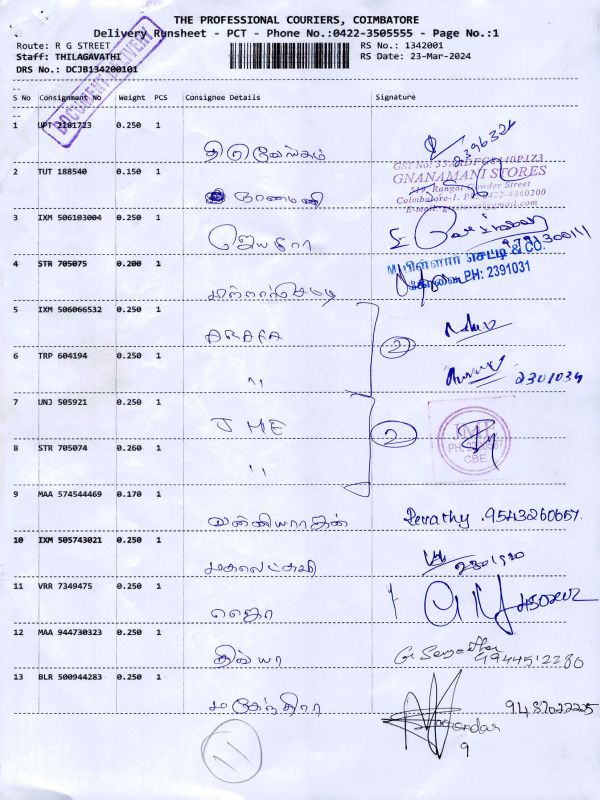 THE PROFESSIONAL COURIERS, COIMBATORE
Delivery Runsheet - PCT - Phone No.:0422-3505555 - Page No.:1
Route: R G STREET RS No.: 1342001
Staff: THILAGAVATHI RS Date: 23-Mar-2024
DRS No.: DCJB134200101
DOCUMENT DELIVERY
S No Consignment No Weight PCS Consignee Details Signature
1 UPT 2101723 0.250 1
திருவேங்கம் 2396324
2 TUT 188540 0.150 1
நாமைணி
GNANAMANI STORES
519, Rangai Gowder Street
Coimbatore-1. Ph: 0422-4360200
3 IXM 506103004 0.250 1
ஜெயசுரா
4 STR 705075 0.200 1
பிள்ளார் செட்டி & CO.
கோவை PH: 2391031
5 IXM 506066532 0.250 1
ARAFA 2
6 TRP 604194 0.250 1
" 2301034
7 UNJ 505921 0.250 1
JME 2
8 STR 705074 0.260 1
"
JME
CBE
9 MAA 574544469 0.170 1
வன்னியராஜன் Revathy . 9543260667.
10 IXM 505743021 0.250 1
மகாலட்சுமி 2301920
11 VRR 7349475 0.250 1
ஜெயா
12 MAA 944730323 0.250 1
திவ்யா 9944512280
13 BLR 500944283 0.250 1
மகேந்திரா 9487022225
9
11